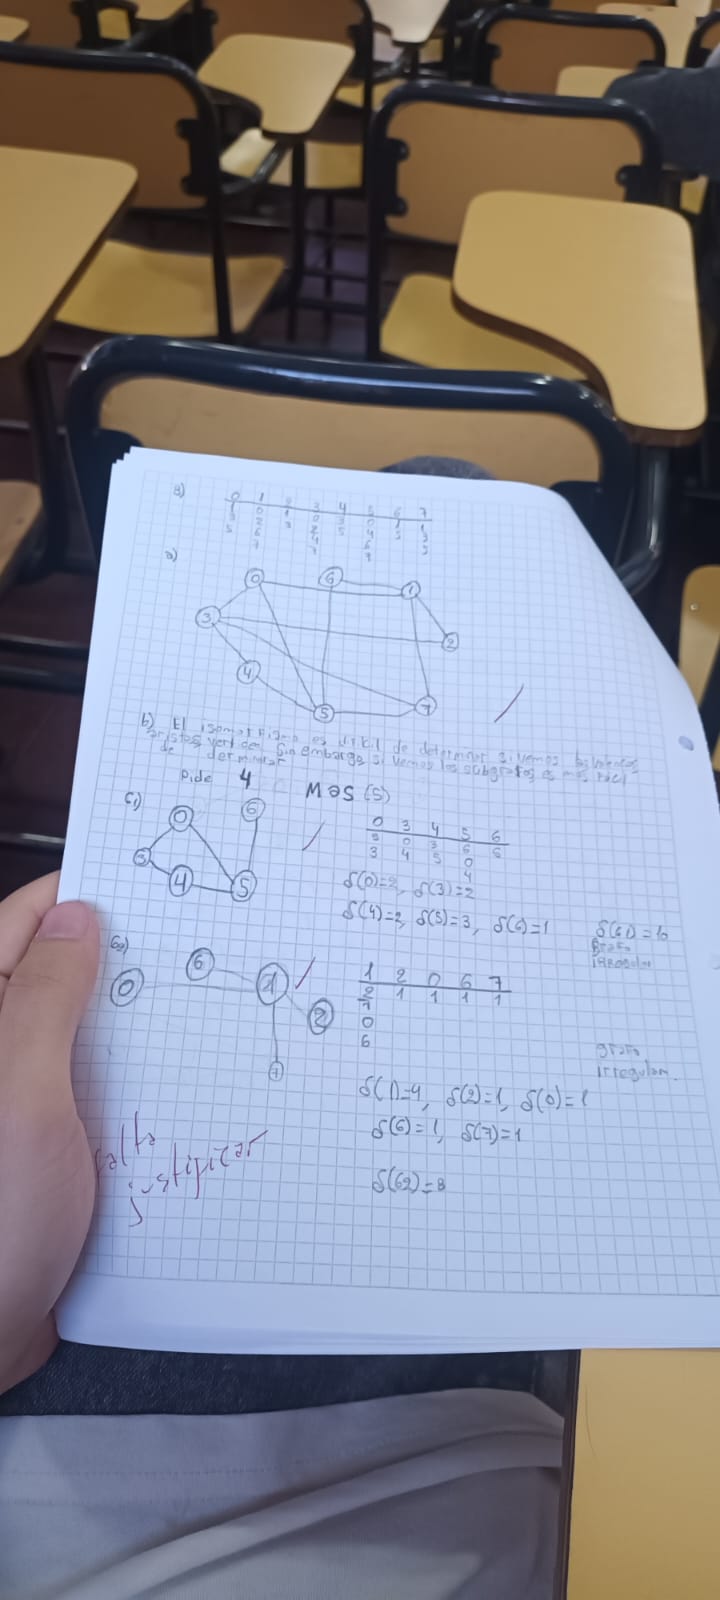 3)
0 1 2 3 4 5 6 7
1 0 1 0 3 0 1 1
3 2 3 2 5 4 5 3
5 6 4 6 5
7 7 7
a)
0 6 1
3 2
4
5 7
b) El isomorfismo es difil de determinar si vemos
aristas, vertices. Sin embargo si vemos los subgrafos es mas facil
de derminar
Pide 4 Mas (5)
G1)
0 6
3 4 5
0 3 4 5 6
5 0 3 6 5
3 4 5 0
4
δ(0)=2, δ(3)=2
δ(4)=2, δ(5)=3, δ(6)=1
δ(G1)=10
Grafo
irregular
G2)
0 6 1 2
7
1 2 0 6 7
2 1 1 1 1
7
0
6
grafo
irregular.
δ(1)=4, δ(2)=1, δ(0)=1
δ(6)=1, δ(7)=1
δ(G2)=8
falta
justificar